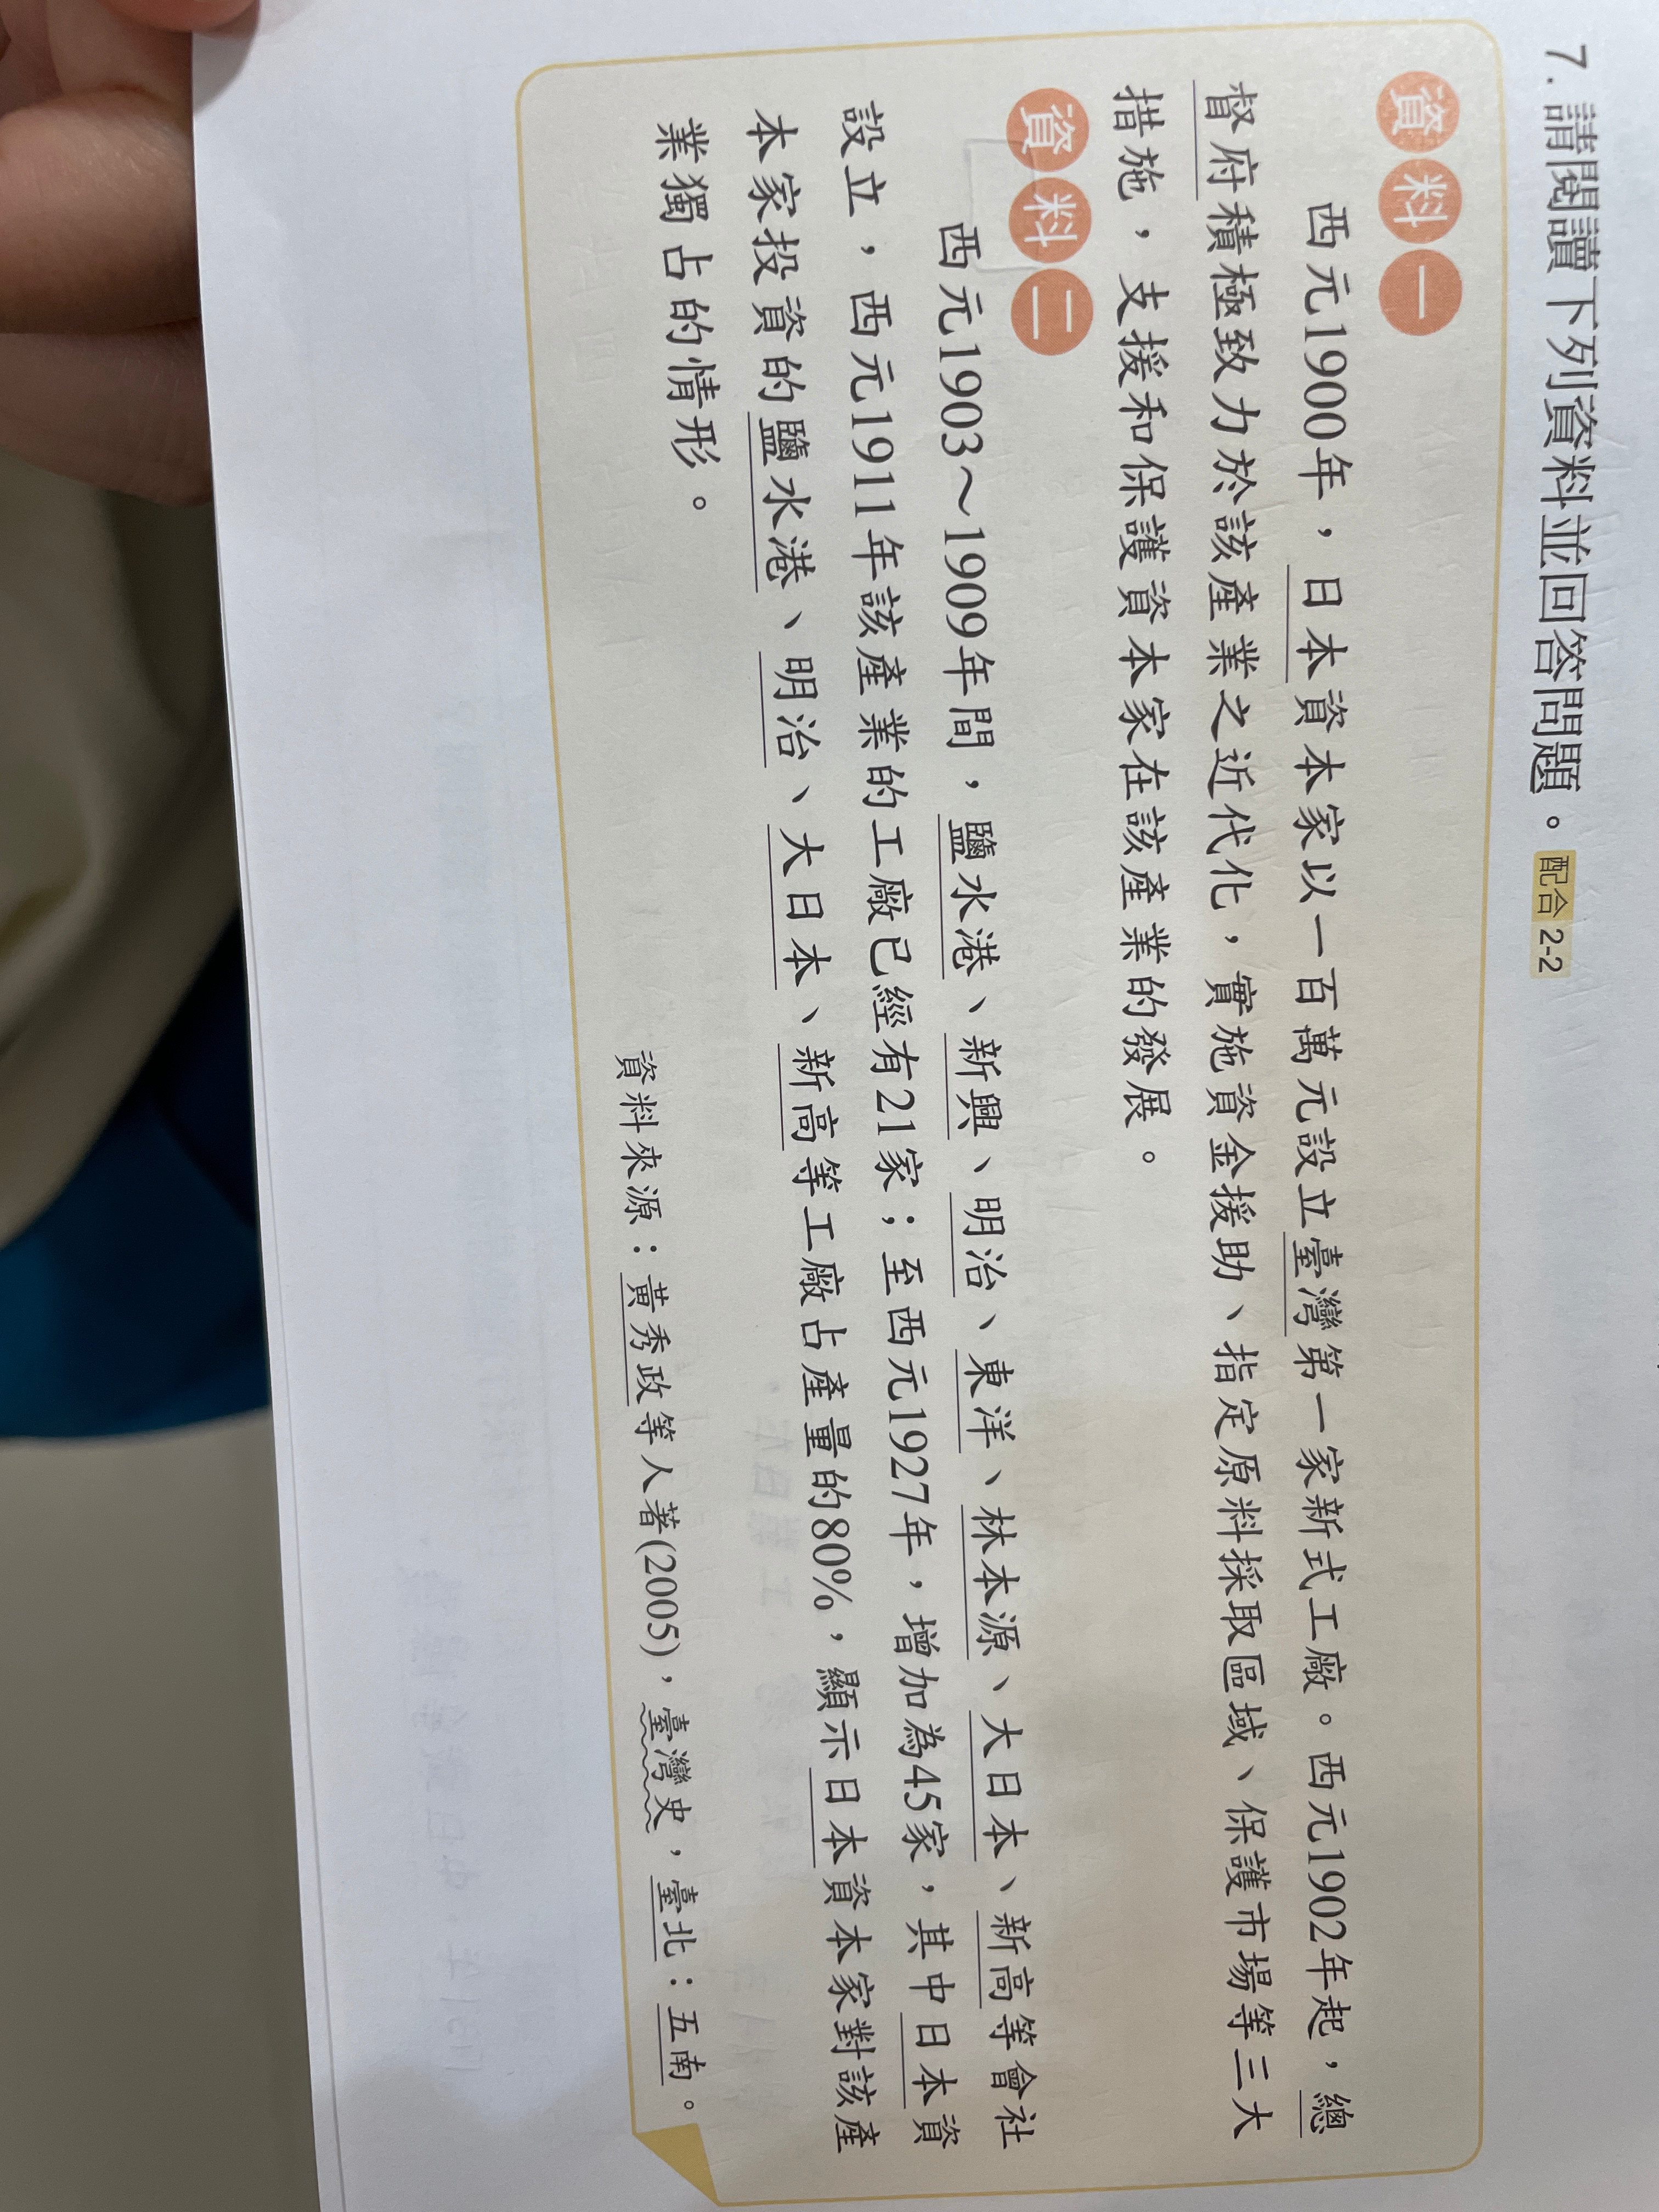 7. 請閱讀下列資料並回答問題。配合 2-2
資料一
西元1900年，日本資本家以一百萬元設立臺灣第一家新式工廠。西元1902年起，總
督府積極致力於該產業之近代化，實施資金援助、指定原料採取區域、保護市場等三大
措施，支援和保護資本家在該產業的發展。
資料二
西元1903～1909年間，鹽水港、新興、明治、東洋、林本源、大日本、新高等會社
設立，西元1911年該產業的工廠已經有21家；至西元1927年，增加為45家，其中日本資
本家投資的鹽水港、明治、大日本、新高等工廠占產量的80%，顯示日本資本家對該產
業獨占的情形。
資料來源：黃秀政等人著(2005)，臺灣史，臺北：五南。